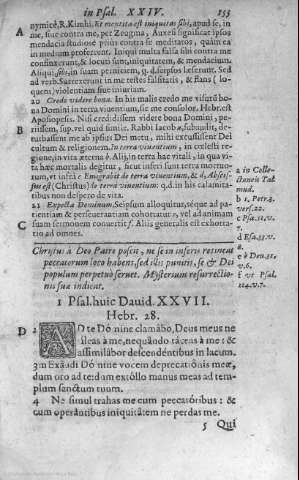 in Psal. XXIV. 153
nymicè, R. Kimhi. Et mentita est iniquitas sibi, apud se, in
A me, siue contra me, per Zeugma, Auxesi significat ipsos
mendacia studiosè priùs contra se meditatos, quàm ea
in medium proferrent. Iniqui multa falsa sibi contra me
confinxerunt, & locuti sunt, iniquitatem, & mendacium.
Aliqui, sibi, in suam perniciem, q. d. seipsos læserunt. Sed
ad verb. Surrexerunt in me testes falsitatis, & flans (lo-
quens) violentiam siue iniuriam.
20 Credo videre bona. In his malis credo me visurũ bo-
na Domini in terra viuentium, se me consolor. Hebr. est
Aposiopesis. Nisi credidissem videre bona Domini, pe-
riissem, sup. vel quid simile. Rabbi Iacob a, subaudit, de-
B turbassent me ab ipsius Dei metu, mihi excussissent Dei
cultum & religionem. In terra viuentium, in cælesti re-
gione, in vita æterna b. Alij, in terra hac vitali, in qua vi-
ta hæc mortalis degitur, sicut inferi sunt terra mortuo-
rum, vt infrà c Emigrabit de terra viuentium, & d, Absciss-
sus est (Christus) de terra viuentium: q. d. in his calamita-
tibus non despero de vita.
21 Expecta Dominum. Seipsum alloquitur, téque ad pa-
tientiam & perseuerantiam cohortatur e, vel ad animam
C suam sermonem conuertit f. Aliis generalis est exhorta-
tio ad omnes.
a in Colle-
ctaneis Tal
mud.
b 1. Petr. 3.
vers. 22.
c Psa. 51. v.
7.
d Esa. 53. v.
8.
e b Deu. 31.
v. 6.
f vt Psal.
114. v. 7.
Christus à Deo Patre poscit, ne se in inferis retineat
peccatorum loco habens, sed illis punitis, se & Dei
populum perpetuò seruet. Mysterium resurrectio-
nis suæ indicat.
1 Psal. huic Dauid. XXVII.
Hebr. 28.
D 2 AD te Dómine clamábo, Deus meus ne
síleas à me, nequándo táceas à me: &
assimilábor descendéntibus in lacum.
3 Exáudi Dómine vocem deprecatiónis meæ,
dum oro ad te: dum extóllo manus meas ad tem-
plum sanctum tuum.
4 Ne simul trahas me cum peccatóribus: &
cum operántibus iniquitátem ne perdas me.
5 Qui